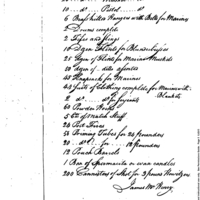 10 do Pistol do
6 Brass hilted Hangers with Belts for Marines
2 Drums complete
2 Fifes and slings
10 Dozen Flints for Blunderbusses
25 Dozen of Flints for Marines Muskets
50 Dozen of ditto
40 Knapsacks for Marines
43 Suits of Clothing complete for Marines with Blankets
2 do do for Serjeants
60 Powder Horns
5 Ct of Match Stuff
24 Port Fires
50 Priming Tubes for 24 pounders
20 do for 18 pounders
12 Pouch Barrels
1 Box of Spermaceti or wax candles
200 Cannisters of Shot for 3 pound Howitzers
James McHenry